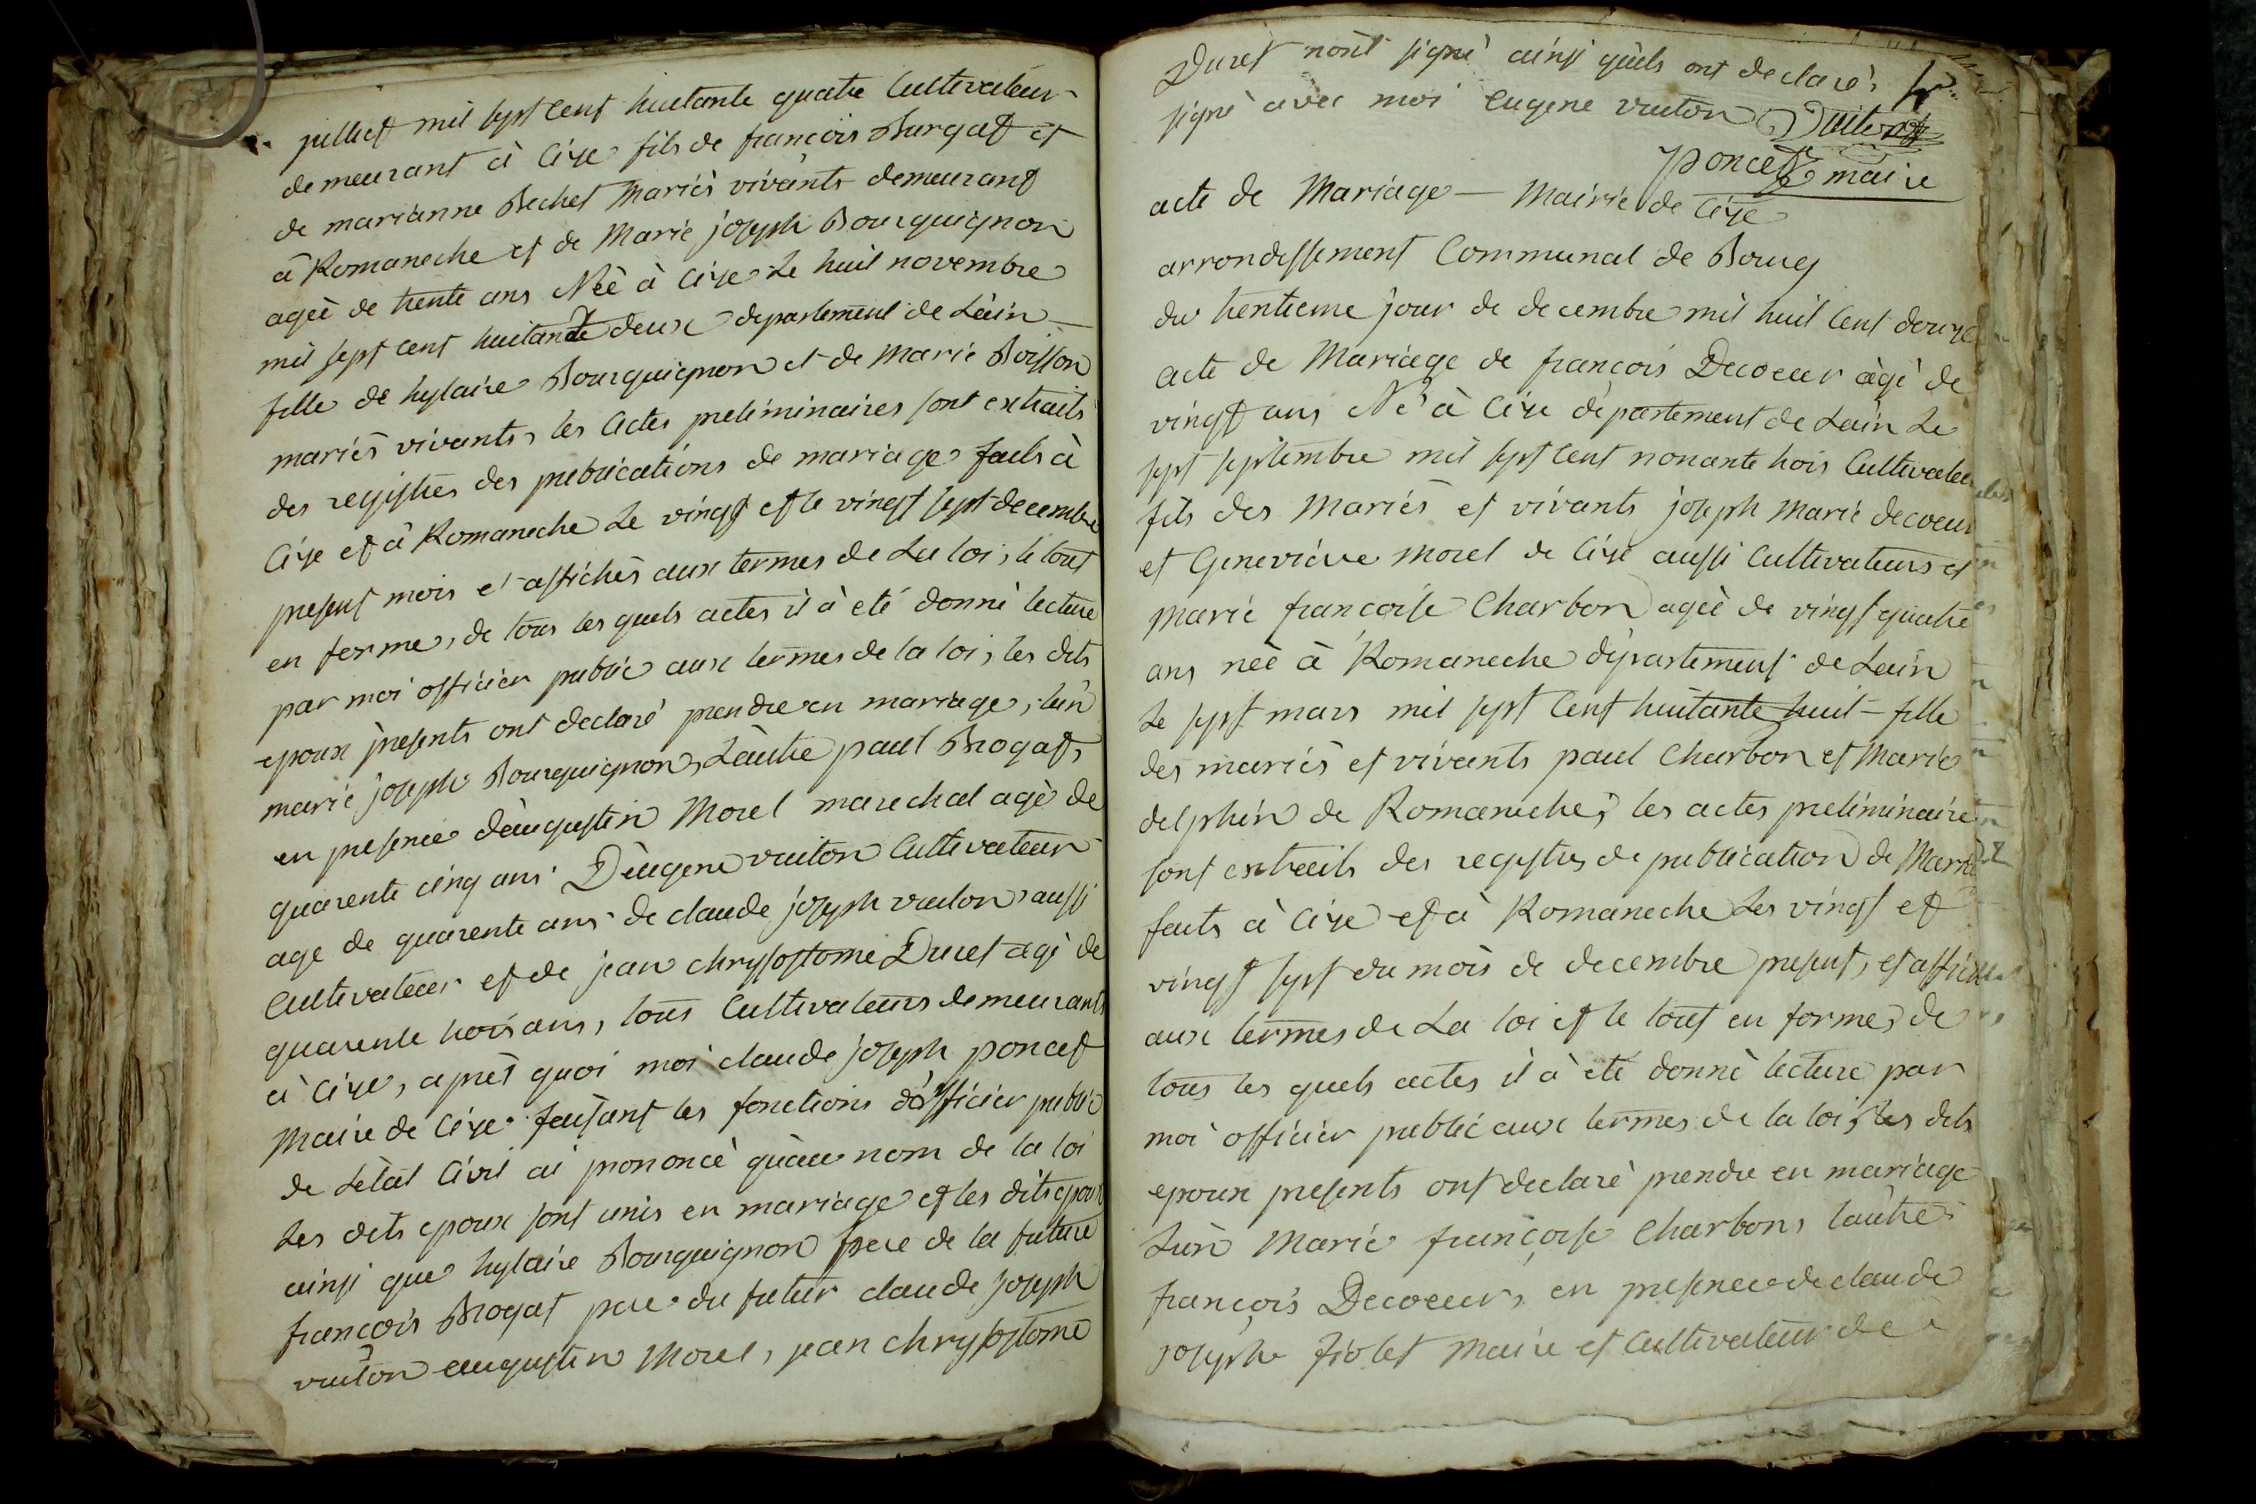 juillief mil sept Cent huitante quatre Cultivateur
demeurant à Cize fils de françois Burgat et
de marianne Bechet Mariés vivants demeurant
à Romaneche et de Marie joseph Bourguignon
ageé de trente ans Née à Cize Le huit novembre
mil sept cent huitante deux departement de Làin
fille de hylaire Bourguignon et de Marie Boisson
mariés vivants, les Actes preliminaires sont extraits
des registres des publications de mariage faits à
Cize et à Romaneche Le vingt et le vingt sept decembre
present mois et affichés aux termes de La loi, le tout
en forme, de tous les quels actes il à eté donné lecture
par moi officier public aux termes de la loi, les dits
epoux presents ont declaré prendre en mariage, lún
marie joseph Bourguignon, Làutre paul Brogat,
en presence dàugustin Morel marechal agé de
quarente cinq ans Dèugene vuiton Cultivateur
age de quarente ans de claude joseph vuiton aussi
Cultivateur et de jean chrysostome Duret agé de
quarente trois ans, tous Cultivateurs demeurants
à Cize, aprés quoi moi claude joseph poncet
Maire de Cize faisant les fonctions dòfficier public
de Létat Civil ai prononcé quàu nom de la loi
Les dits epoux sont unis en mariage et les dits epoux
ainsi que hylaire Bourguignon pere de la future
françois Brogat pere du futur claude joseph
vuiton augustin Morel, jean chrysostome
Duret nont signé ainsi quìls ont declaré,
signé avec moi Eugene vuiton
poncet maire
acte de Mariage — Mairie de Cize
arrondissement Communal de Bourg
du trentieme jour de decembre mil huit Cent douze
acte de Mariage de françois Decoeur àgé de
vingt ans Né à Cize département de Lain Le
sept septembre mil sept Cent nonante trois Cultivateur
fils des Mariés et vivants joseph Marie decoeur
et Geneviéve Morel de Cize aussi Cultivateurs et
Marie françoise Charbon ageé de vingt quatre
ans neé à Romaneche département de Lain
Le sept mars mil sept Cent huitante huit – fille
des mariés et vivants paul Charbon et Marie
delphin de Romaneche, les actes preliminaire
sont extraits des registres de publication de Maria
faits à Cize et à Romaneche Les vingt et
vingt sept du mois de decembre present, et affiché
aux termes de La loi et le tout en forme, de
tous les quels actes il à eté donné lecture par
moi officier public aux termes de la loi, Les dits
epoux presents ont declaré prendre en mariage
Lùn Marie françoise Charbon, laûtre
françois Decoeur, en presence de claude
josephe fiolet Maire et Cultivateur de